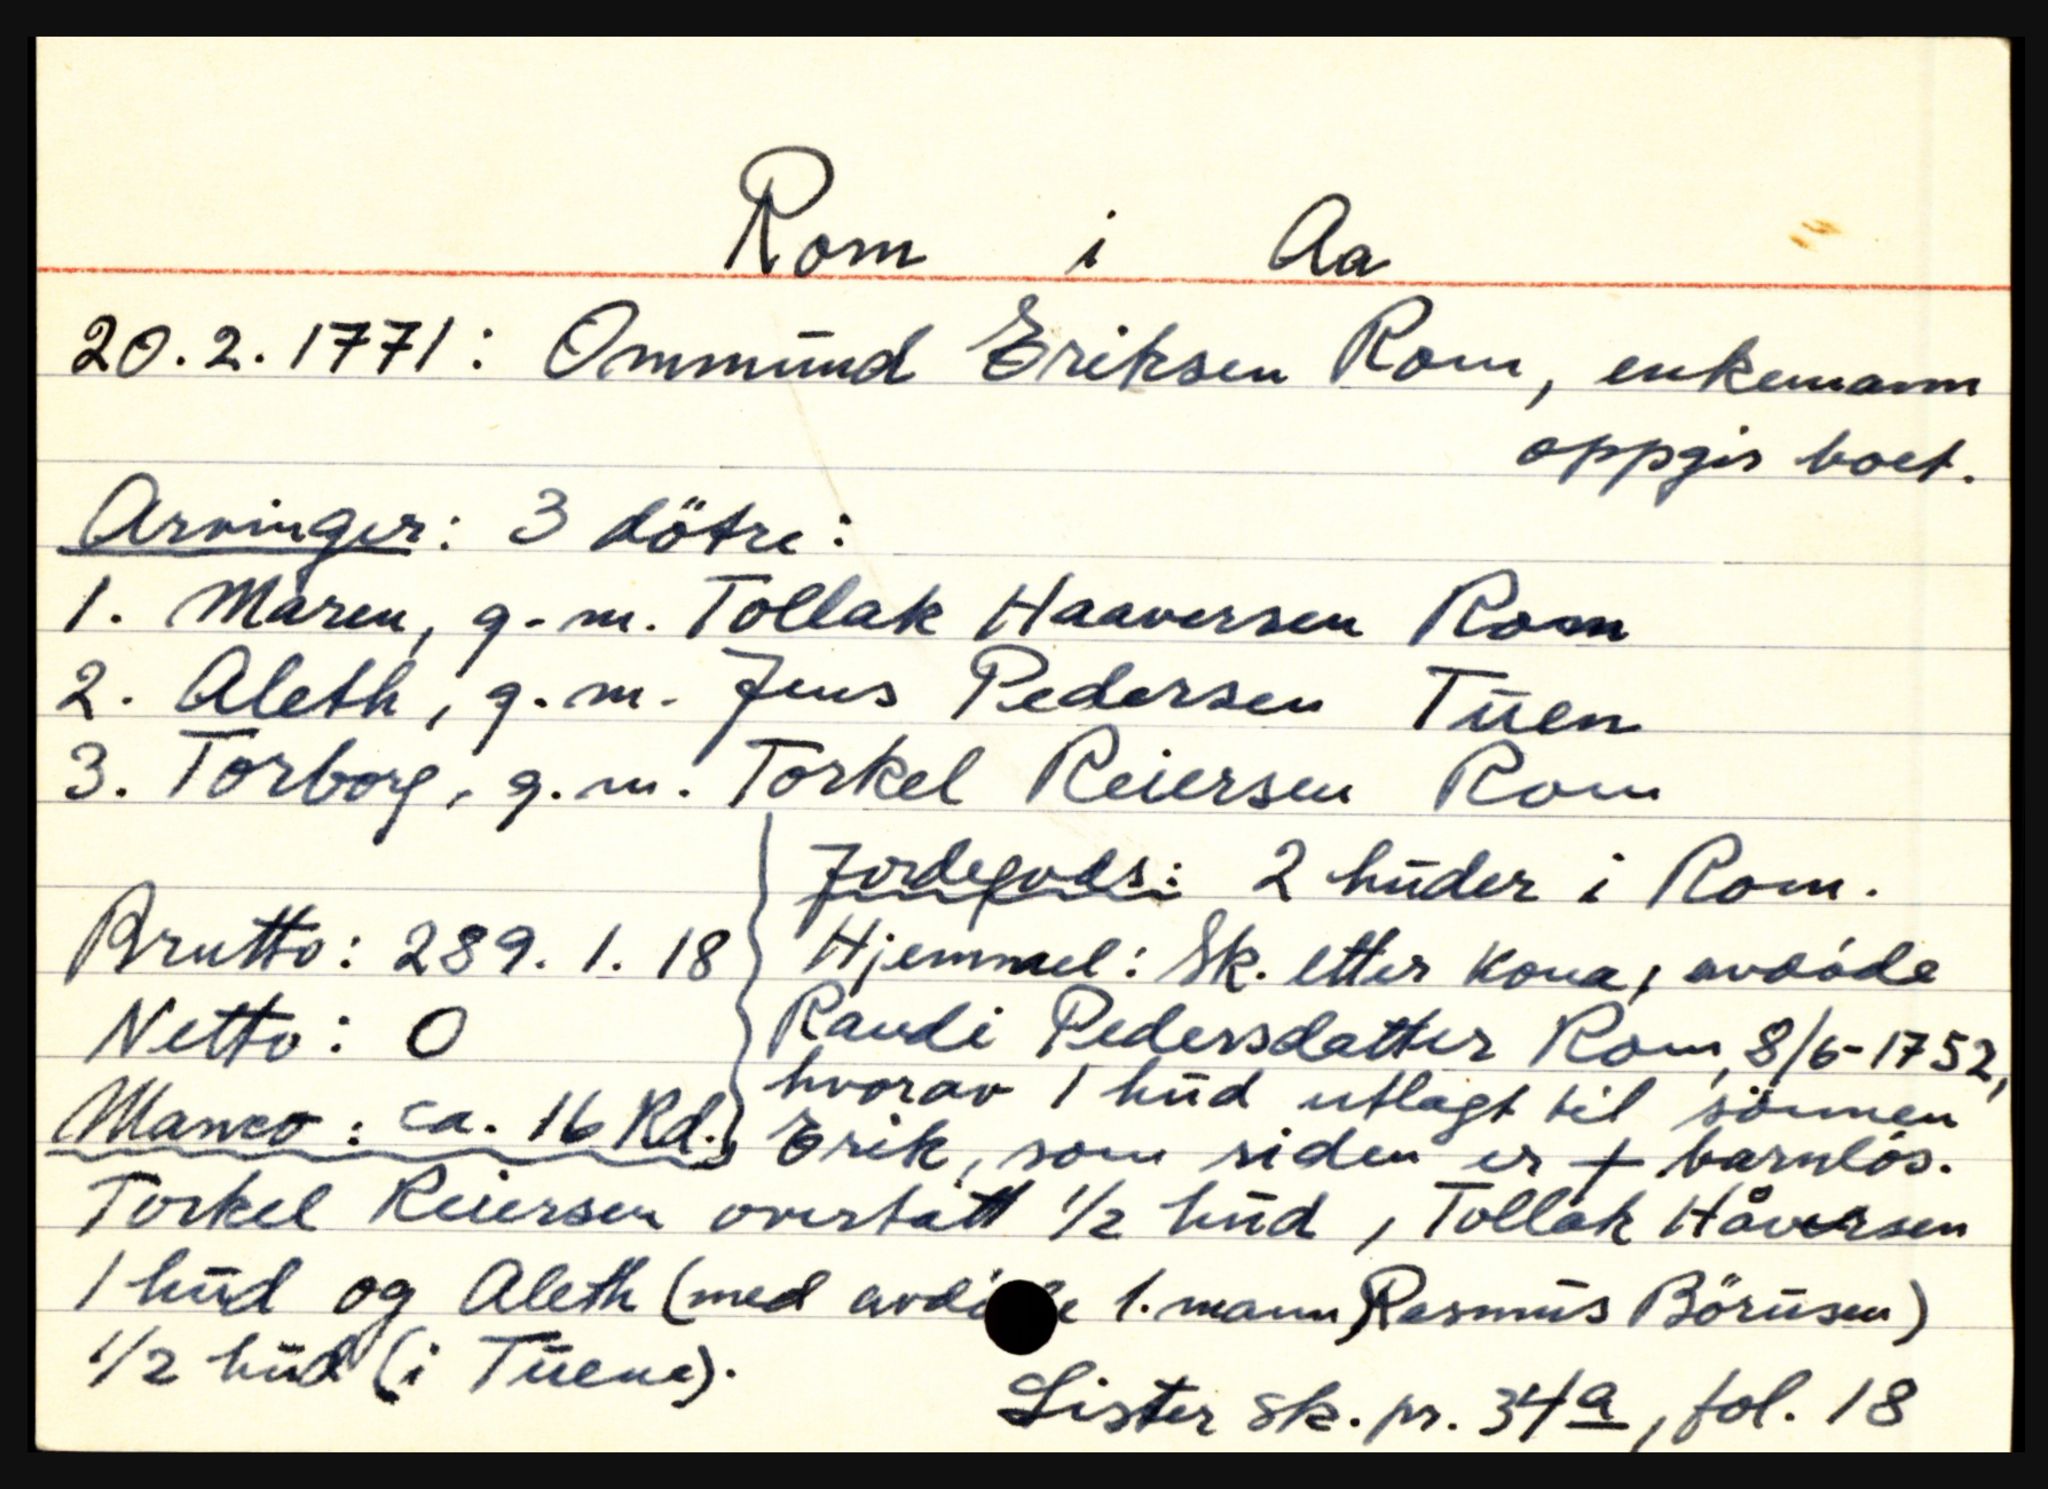 Rom i Aa
20.2.1771: Ommund Eriksen Rom, enkemann
oppgir boet.
Arvinger: 3 dötre:
1. Maren, g.m. Tollak Haaversen Rom
2. Aleth, g.m. Jens Pedersen Tuen
3. Torborg, g.m. Torkel Reiersen Rom
Brutto: 289.1.18
Netto: 0
Manco: ca. 16 Rd.
Jordegods: 2 huder i Rom.
Hjemmel: Sk. etter kona, avdöde
Randi Pedersdatter Rom, 8/6-1752,
hvorav 1 hud utlagt til sönnen
Erik, som siden er + barnlös.
Torkel Reiersen overtatt 1/2 hud, Tollak Håversen
1 hud og Aleth (med avdöde 1. mann, Rasmus Börusen)
1/2 hud (i Tuene).
Lister sk. pr. 34a, fol. 18